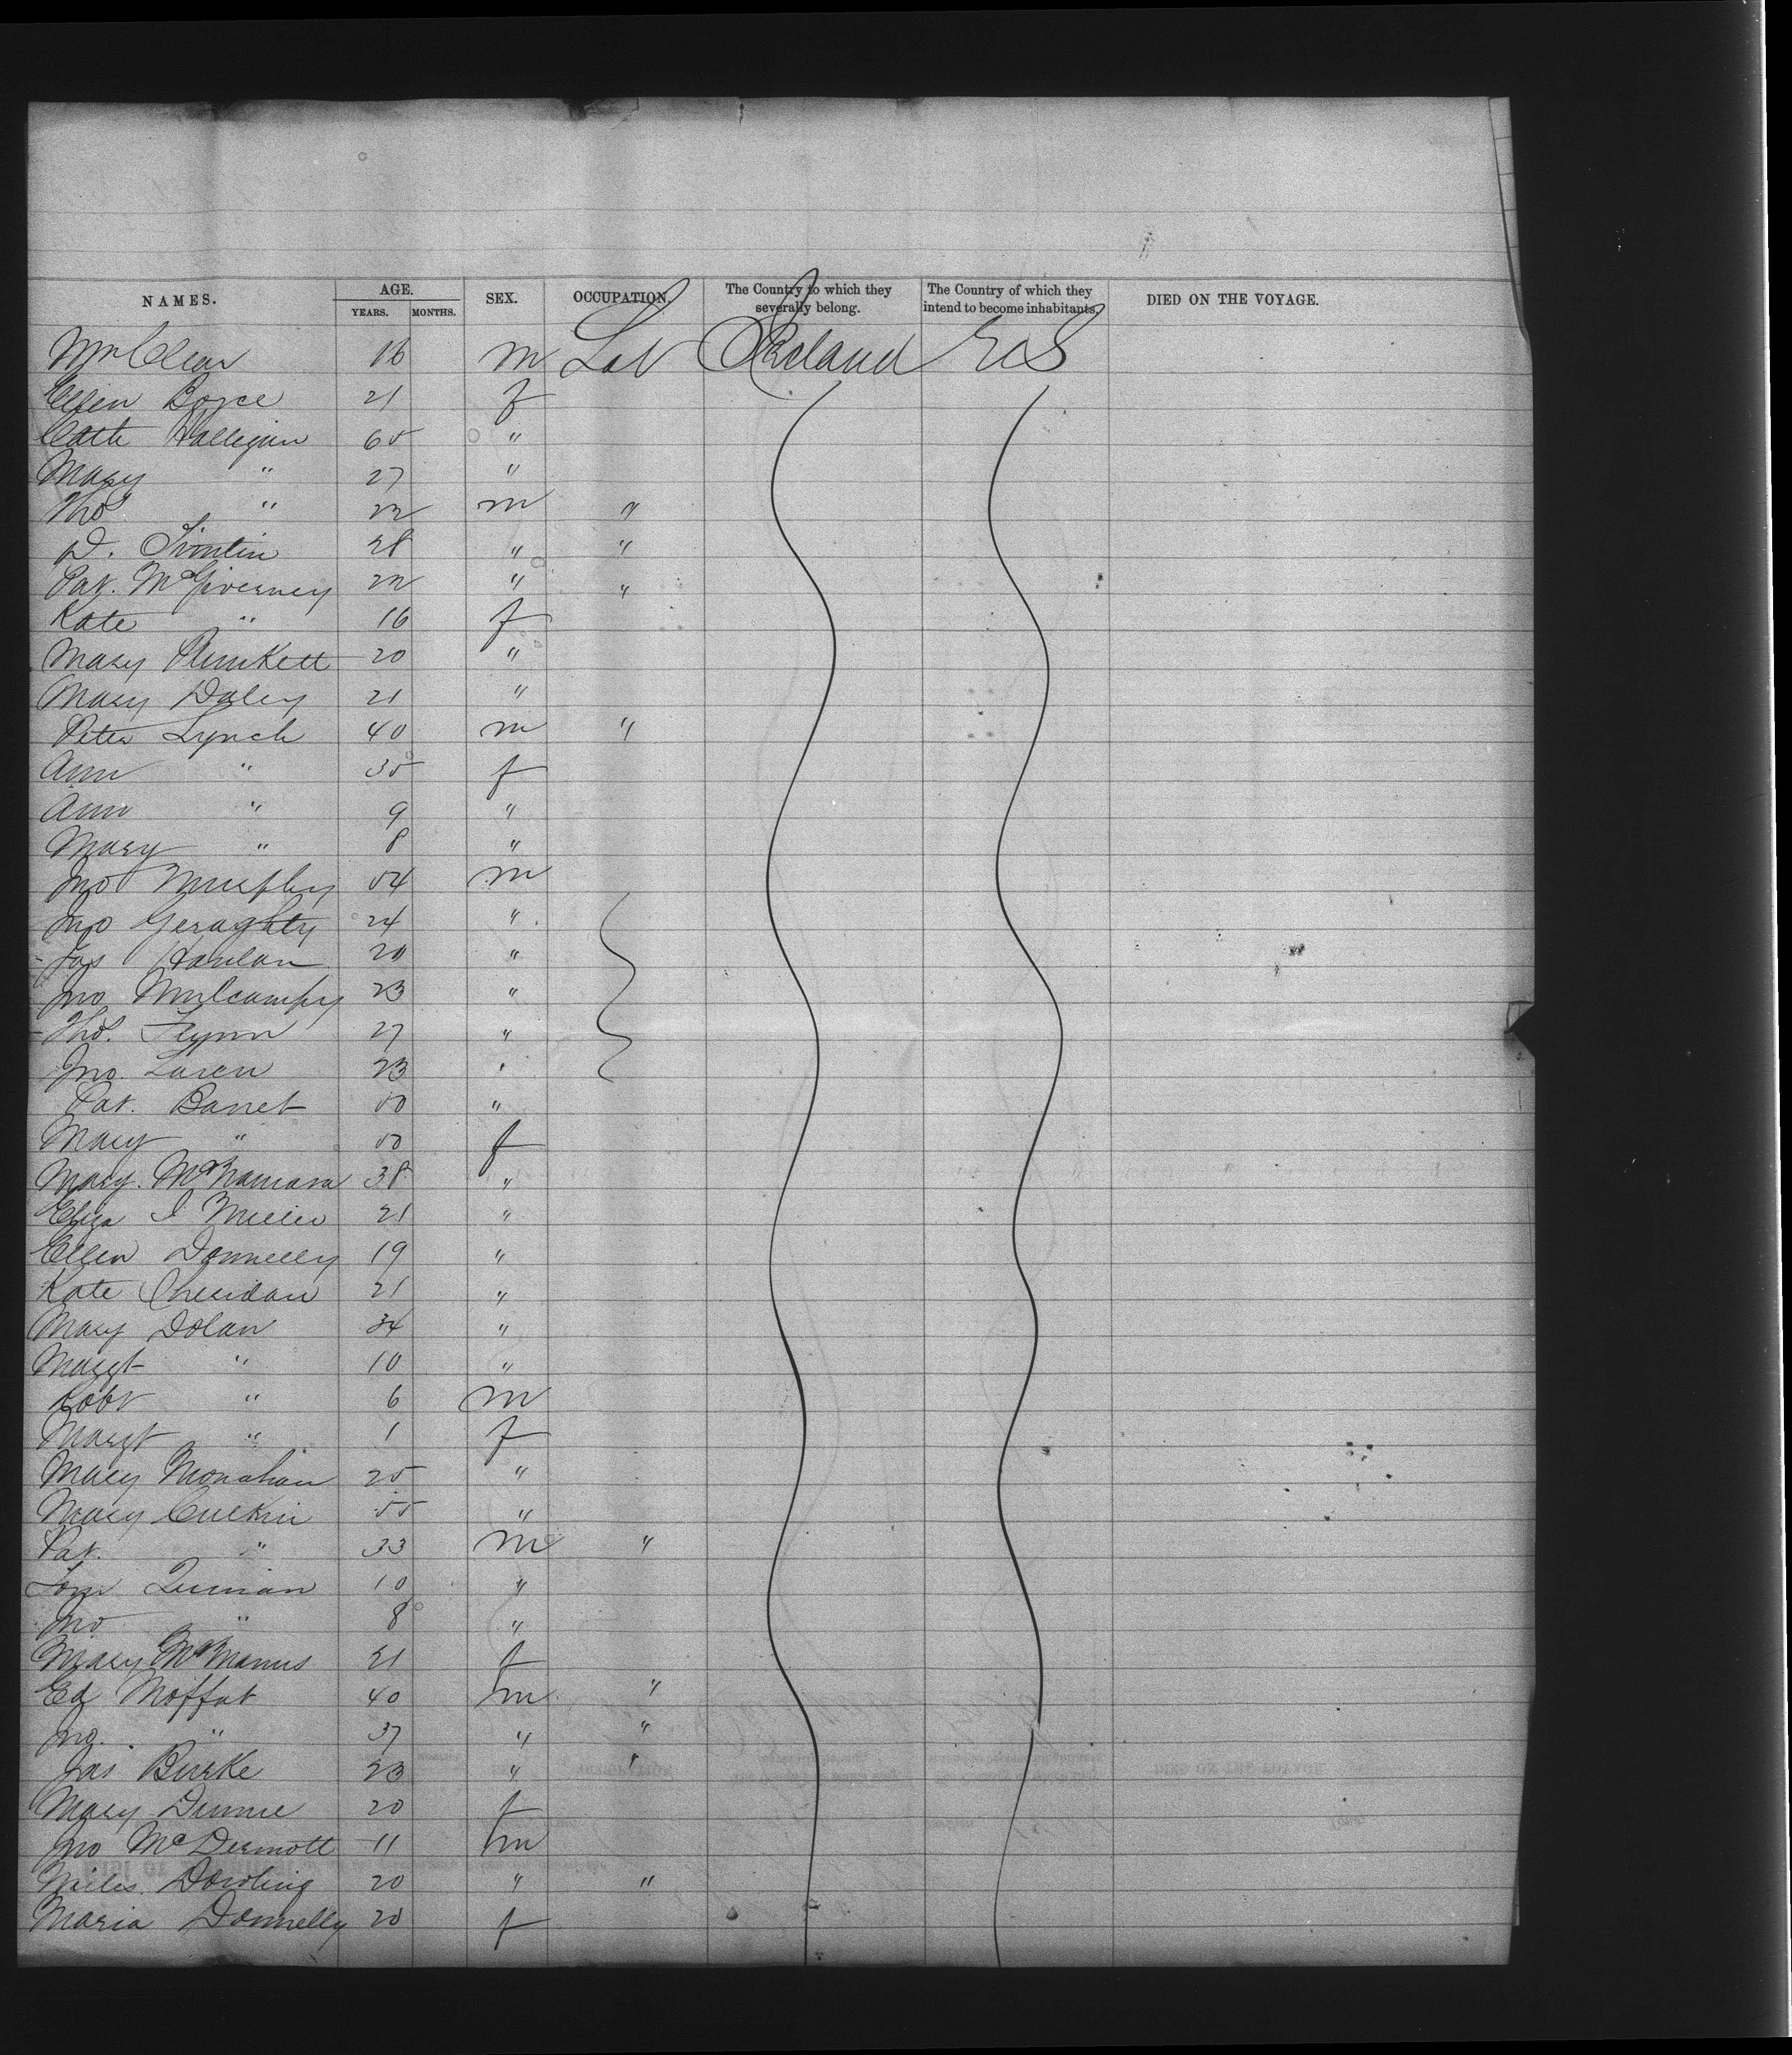 NAMES. AGE. SEX. OCCUPATION. The Country to which they severally belong. The Country of which they intend to become inhabitants. DIED ON THE VOYAGE.
YEARS. MONTHS.
Wm Clear 16 m Lab Ireland U S
Ellen Boyce 21 f
Cath Halligan 65 "
Mary " 27 "
Tho " 22 m "
D. Timlin 28 " "
Pat. McGiverney 22 " "
Kate " 16 f
Mary Plunkett 20 "
Mary Daley 21 "
Peter Lynch 40 m "
Ann " 35 f
Ann " 9 "
Mary " 8 "
Jno Murphy 54 m
Jno Geraghty 24 "
Jas Hanlan 20 "
Jno 23 "
Thos. Flynn 27 "
Jno. Laren 23 "
Pat. Barret 50 "
Mary " 50 f
Mary. McNamara 38 "
Eliza J 21 "
Ellen Donnelly 19 "
Kate Sheridan 21 "
Mary Dolan 34 "
Margt " 10 "
Robt " 6 m
Margt " 1 f
Mary Monahan 25 "
Mary Culkin 55 "
Pat. " 33 m "
Tom Quinian 10 "
Jno " 8 "
Mary McManus 21 f
Ed Moffat 40 m "
Jno. " 37 " "
Jas Burke 23 " "
Mary Dunne 20 f
Jno McDermott 11 m
Miles Dowling 20 " "
Maria Donnelly 20 f